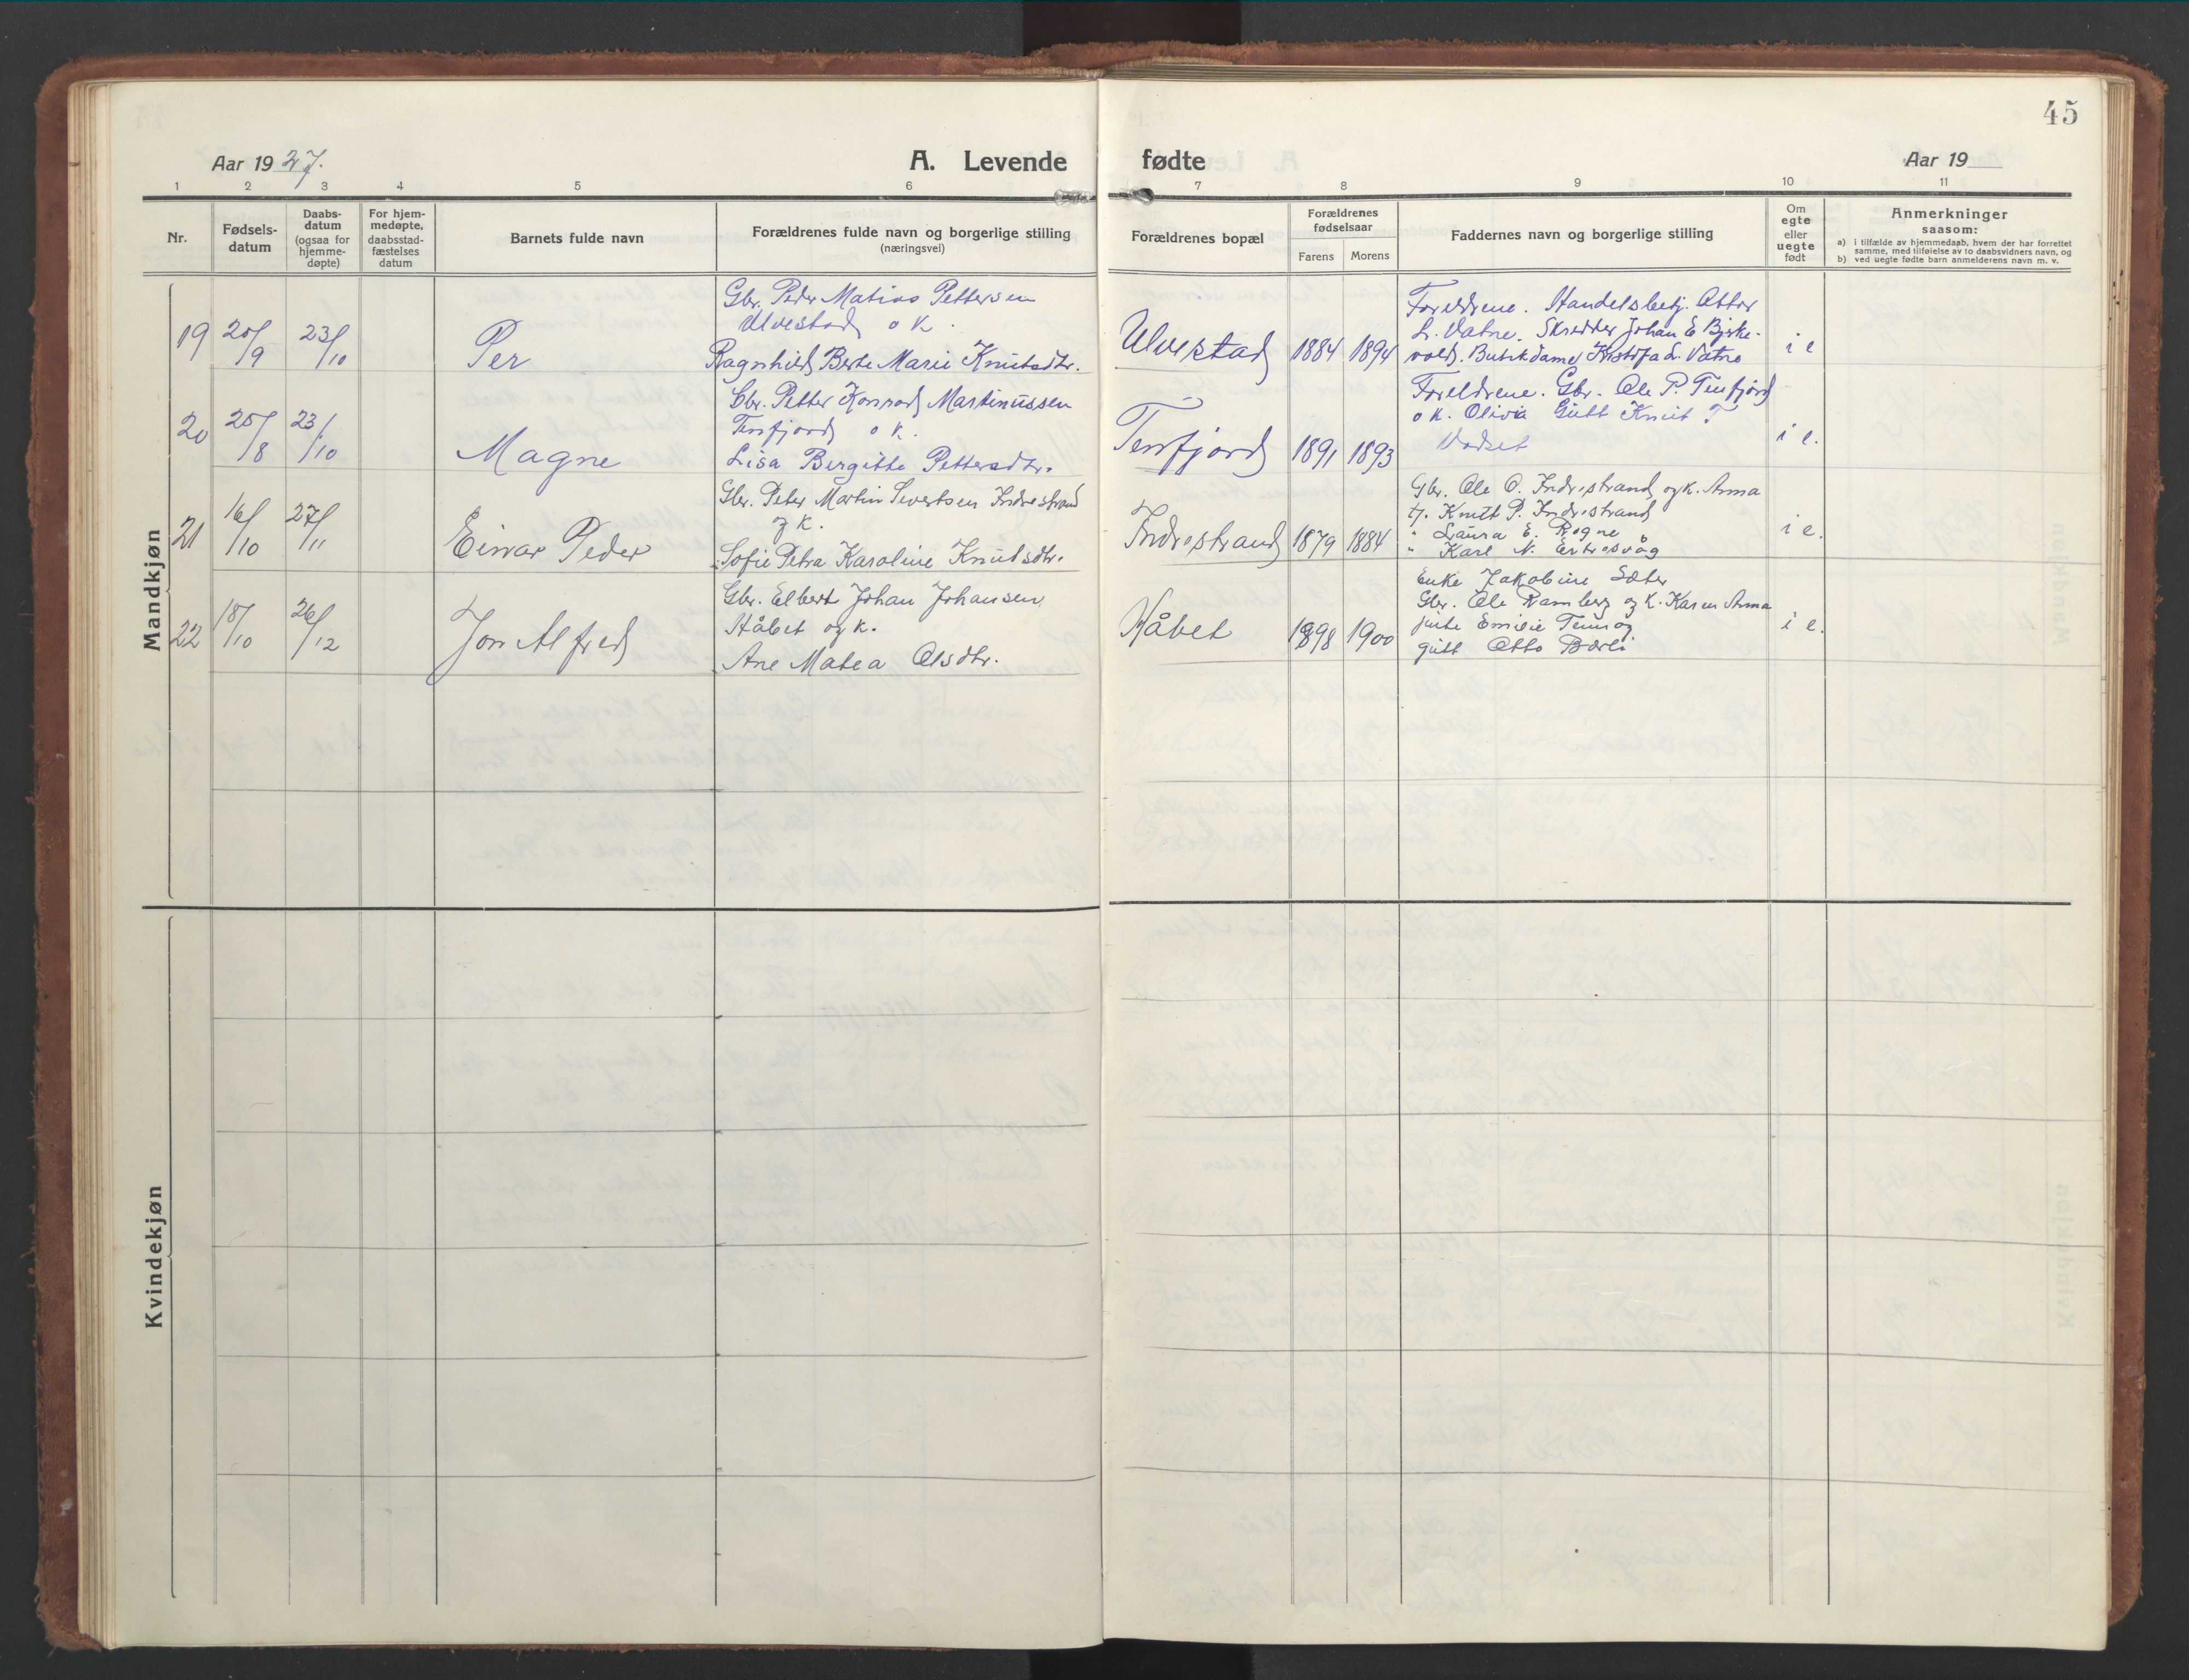 45
Aar 1927.
A. Levende fødte
Aar 19
1 2 3 4 5 6 7 8 9 10 11
Nr.
Fødsels-
datum
Daabs-
datum
(ogsaa for
hjemme-
døpte)
For hjem-
medøpte,
daabsstad-
fæstelses
datum
Barnets fulde navn
Forældrenes fulde navn og borgerlige stilling
(næringsvei)
Forældrenes bopæl
Forældrenes
fødselsaar
Farens Morens
Faddernes navn og borgerlige stilling
Om
egte
eller
uegte
født
Anmerkninger
saasom:
a) i tilfælde av hjemmedaab, hvem der har forrettet
samme, med tilføielse av to daabsvidners navn, og
b) ved uegte fødte barn anmelderens navn m. v.
Mandkjøn
19 20/9 23/10 Per
Gbr. Peder Matias Pettersen
Ulvestad o k.
Ragnhild Berte Marie Knutsdtr.
Ulvestad 1884 1894
Foreldrene. Handelsbetj. Ottar
L. Vatne. Skredder Johan E Bjørke-
vold. Butikdame L. Vatne
i e
20 25/8 23/10 Magne
Gbr. Petter Konrad Martinussen
Tenfjord o k.
Lisa Bergitte Pettersdtr.
Tenfjord 1891 1893
Foreldrene. Gbr. Ole P. Tenfjord
o k. Olivia Gutt Knut T
Vadset
i e.
21 16/10 27/11 Einar Peder
Gbr. Peter Martin Sivertsen Indrestrand
og k.
Sofie Petra Karoline Knutsdtr.
Indrestrand 1879 1884
Gbr. Ole O. Indrestrand og k. Anna
tj. Knut P. Indrestrand
" Laura E. Rogne
" Karl N. Eertesvåg
i e.
22 18/10 26/12 Jon Alfred
Gbr. Elbert Johan Johansen
Håbet og k.
Ane Matea Olsdtr.
Håbet 1898 1900
Enke Jakobine Sæter
Gbr. Ole Ramberg og k. Karen Anna
jente Emilie og
gutt Otto
i e.
Kvindekjøn